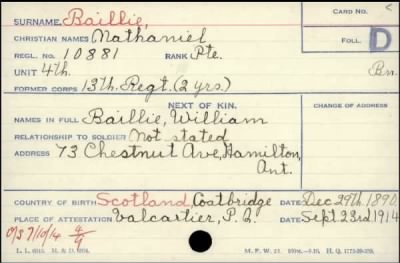 SURNAME. Baillie, CARD NO.
CHRISTIAN NAMES Nathaniel
REGL. NO. 10881 RANK Pte. FOLL. D
UNIT 4th. Bn.
FORMER CORPS 13th. Regt. (2 yrs.)
NEXT OF KIN. CHANGE OF ADDRESS
NAMES IN FULL Baillie, William
RELATIONSHIP TO SOLDIER Not stated
ADDRESS 73 Chestnut Ave, Hamilton,
Ont.
COUNTRY OF BIRTH Scotland, Coatbridge DATE Dec. 29th. 1890
PLACE OF ATTESTATION Valcartier, P.Q. DATE Sept. 23rd. 1914
O/S 7/10/14